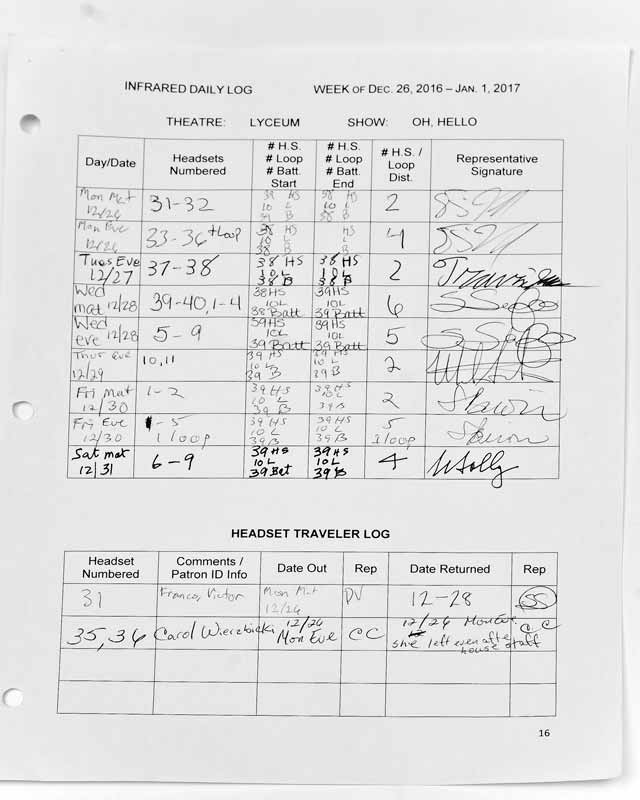 INFRARED DAILY LOG WEEK OF DEC. 26, 2016 – JAN. 1, 2017
THEATRE: LYCEUM SHOW: OH, HELLO
Day/Date
Headsets
Numbered
# H.S.
# Loop
# Batt.
Start
# H.S.
# Loop
# Batt.
End
# H.S. /
Loop
Dist.
Representative
Signature
Mon Mat
12/26
31-32
39 HS
10 L
39 B
38 HS
10 L
38 B
2
Mon Eve
12/26
33-36 +Loop
38 HS
10 L
38 B
HS
L
B
4
Tues Eve
12/27
37-38
38 HS
10 L
38 B
38 HS
10 L
38 B
2
Wed
mat 12/28
39-40, 1-4
38HS
10L
38 Batt
39HS
10L
39 Batt
6
Wed
eve 12/28
5-9
39HS
10L
39 Batt
39HS
10L
39 Batt
5
Thur eve
12/29
10, 11
39 HS
10 L
39 B
39 HS
10 L
39 B
2
Fri Mat
12/30
1-2
39 HS
10 L
39 B
39 HS
10 L
39 B
2
Fri Eve
12/30
-5
1 loop
39 HS
10 L
39 B
39 HS
10 L
39 B
5
1 loop
Sat mat
12/31
6-9
39 HS
10 L
39 Bat
39 HS
10 L
39 B
4
HEADSET TRAVELER LOG
Headset
Numbered
Comments /
Patron ID Info
Date Out
Rep
Date Returned
Rep
31
Franco, Victor
Mon Mat
12/26
DV
12-28
SS
35, 36
Carol Wierzbicki
12/26
Mon Eve
CC
12/26 Mon Eve
she left even after
house staff
CC
16